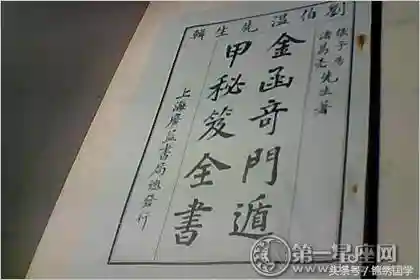 劉伯溫先生輯
子房
諸葛亮先生著
金函奇門遁
甲秘笈全書
上海廣益書局發行
第一星座网
头条号 / 锦绣国学